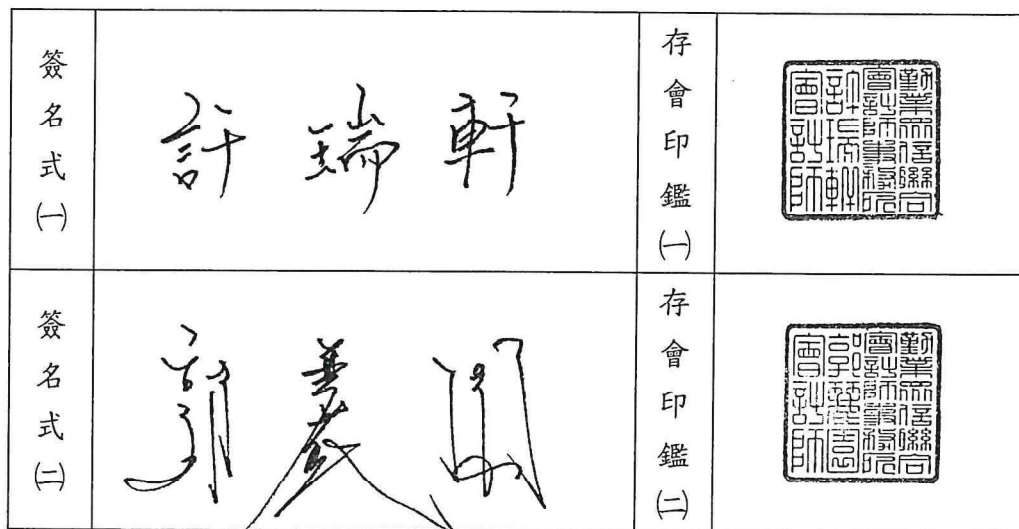 簽名式㈠
許瑞軒
存會印鑑㈠
勤業眾信聯合
會計師事務所
許瑞軒
會計師
簽名式㈡
存會印鑑㈡
勤業眾信聯合
會計師事務所
會計師